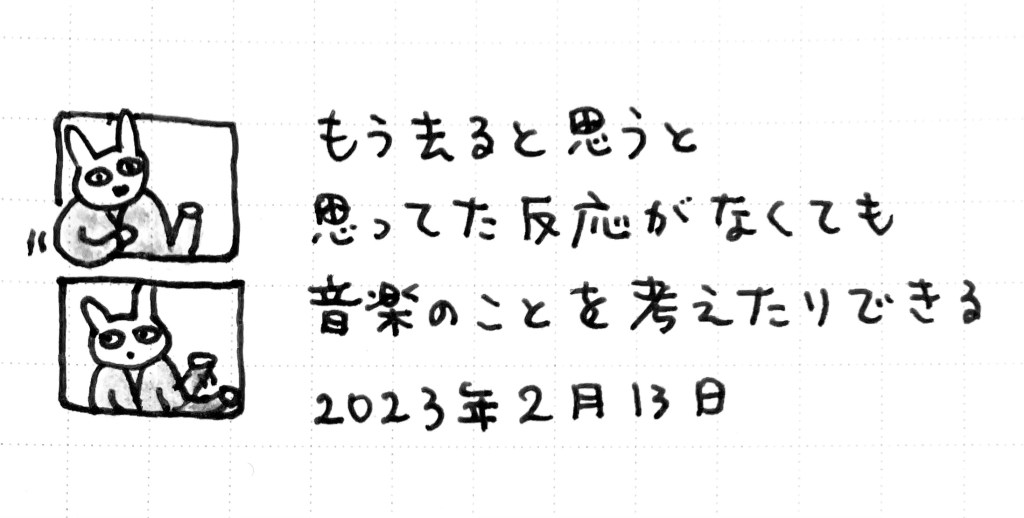 もう去ると思うと
思ってた反応がなくても
音楽のことを考えたりできる
2023年2月13日